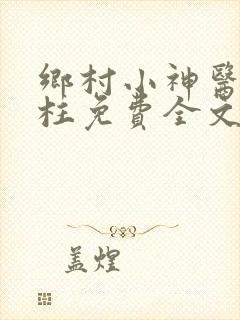 鄉村小神醫
柱免費全文
盖煌